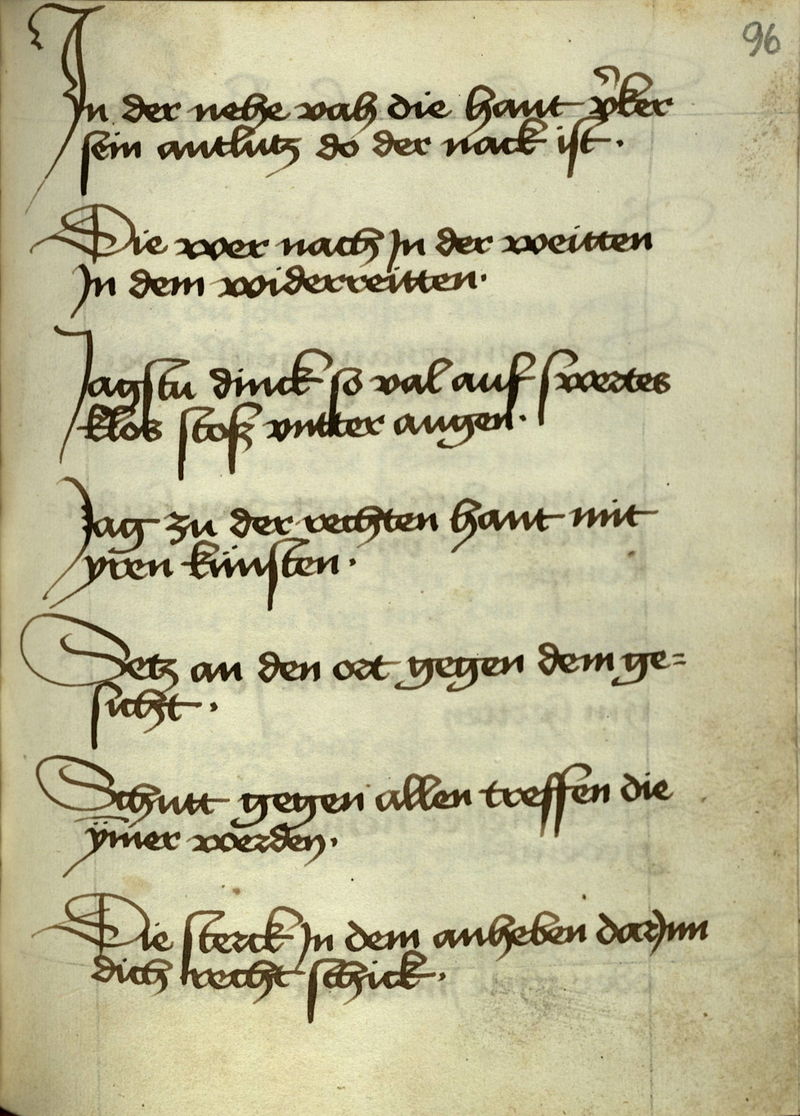 96
In der nehe vah die hant v̾ker
sein antlutz do der nack ist .
Die wer nach In der weitten
In dem widerreitten .
Jagstu dinck so val auf swertes
klos stosz vntter augen .
Jag zu der rechten hant mit
yren künsten .
Setz an den ort gegen dem ge=
sicht .
Schutt gegen allen treffen die
ym̄er werden .
Die sterck In dem anheben darInn
dich recht schick .